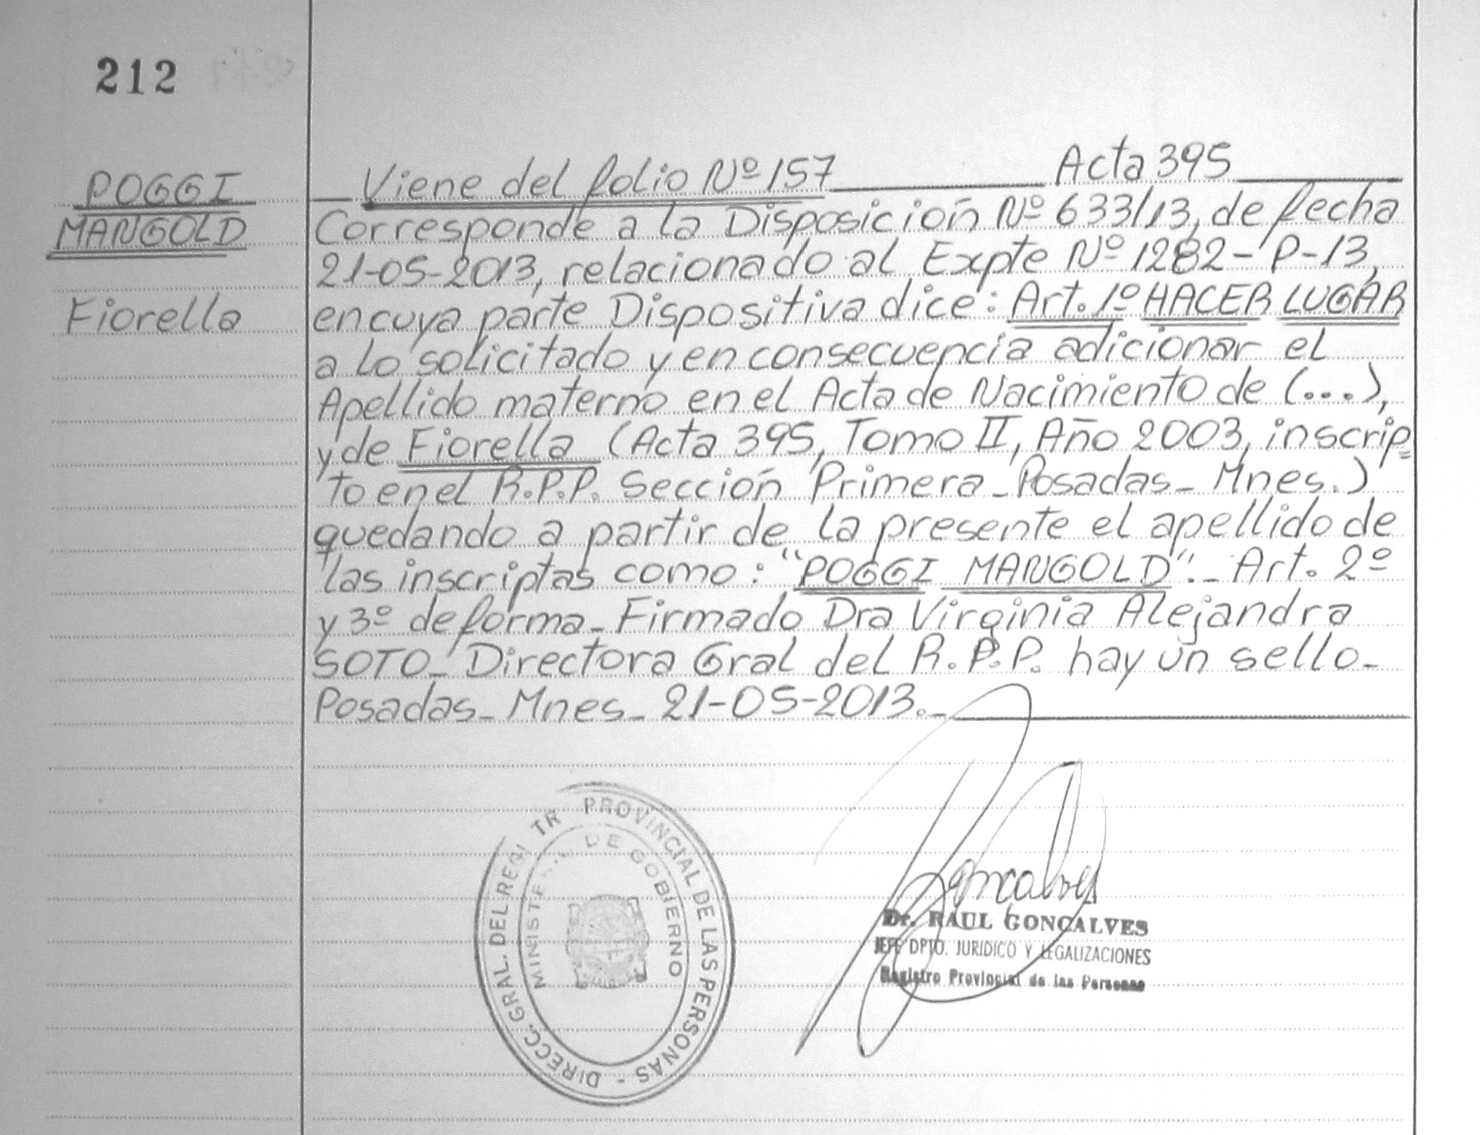 212
POGGI
MANGOLD
Fiorella
Viene del folio Nº 157 Acta 395
Corresponde a la Disposición Nº 633/13, de fecha
21-05-2013, relacionado al Expte Nº 1282-P-13,
en cuya parte Dispositiva dice: Art. 1º HACER LUGAR
a lo solicitado y en consecuencia adicionar el
Apellido materno en el Acta de Nacimiento de (...),
y de Fiorella (Acta 395, Tomo II, Año 2003, inscrip=
to en el R.P.P. Sección Primera_Posadas_Mnes.)
quedando a partir de la presente el apellido de
las inscriptas como: "POGGI MANGOLD"._ Art. 2º
y 3º de forma_Firmado Dra Virginia Alejandra
SOTO_Directora Gral del R.P.P. hay un sello_
Posadas_Mnes_21-05-2013._
DIRECC. GRAL. DEL REGI TR PROVINCIAL DE LAS PERSONAS -
MINISTE DE GOBIERNO
Goncalves
Dr. RAUL GONÇALVES
JEFE DPTO. JURIDICO Y LEGALIZACIONES
Registro Provincial de las Personas